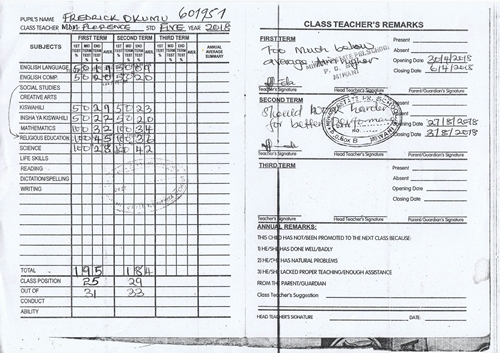 PUPIL'S NAME FREDRICK OKUMU 601951
CLASS TEACHER Mdm FLORENCE STD FIVE YEAR 2018
SUBJECTS FIRST TERM SECOND TERM THIRD TERM ANNUAL AVERAGE SUMMARY
1ST TEST MID TERM TEST END TERM AVER. 1ST TEST MID TERM TEST END TERM AVER. 1ST TEST MID TERM TEST END TERM AVER.
ENGLISH LANGUAGE 50 50
ENGLISH COMP. 50 20 50 20
SOCIAL STUDIES
CREATIVE ARTS
KISWAHILI 50 29 50 23
INSHA YA KISWAHILI 50 22 50 20
MATHEMATICS 100 32 100 34
RELIGIOUS EDUCATION 100 45
SCIENCE 100 28 42
LIFE SKILLS
READING
DICTATION/SPELLING
WRITING
TOTAL 195 184
CLASS POSITION 25 29
OUT OF 31 33
CONDUCT
ABILITY
CLASS TEACHER'S REMARKS
FIRST TERM
Too much below
average
Present
Absent
Opening Date
Closing Date 6/4/2018
Teacher's Signature Head Teacher's Signature Parent/Guardian's Signature
SECOND TERM
Should work harder
for better performance
Present
Absent
Opening Date 27/8/2018
Closing Date 3/8/2018
Teacher's Signature Head Teacher's Signature Parent/Guardian's Signature
THIRD TERM
Present
Absent
Opening Date
Closing Date
Teacher's Signature Head Teacher's Signature Parent/Guardian's Signature
ANNUAL REMARKS:
THIS CHILD HAS/NOT BEEN PROMOTED TO THE NEXT CLASS BECAUSE:
1) HE/SHE HAS DONE WELL/BADLY
2) HE/SHE HAS NATURAL PROBLEMS
3) HE/SHE LACKED PROPER TEACHING/ENOUGH ASSISTANCE
FROM THE PARENT/GUARDIAN
Class Teacher's Suggestion
HEAD TEACHER'S SIGNATURE DATE: